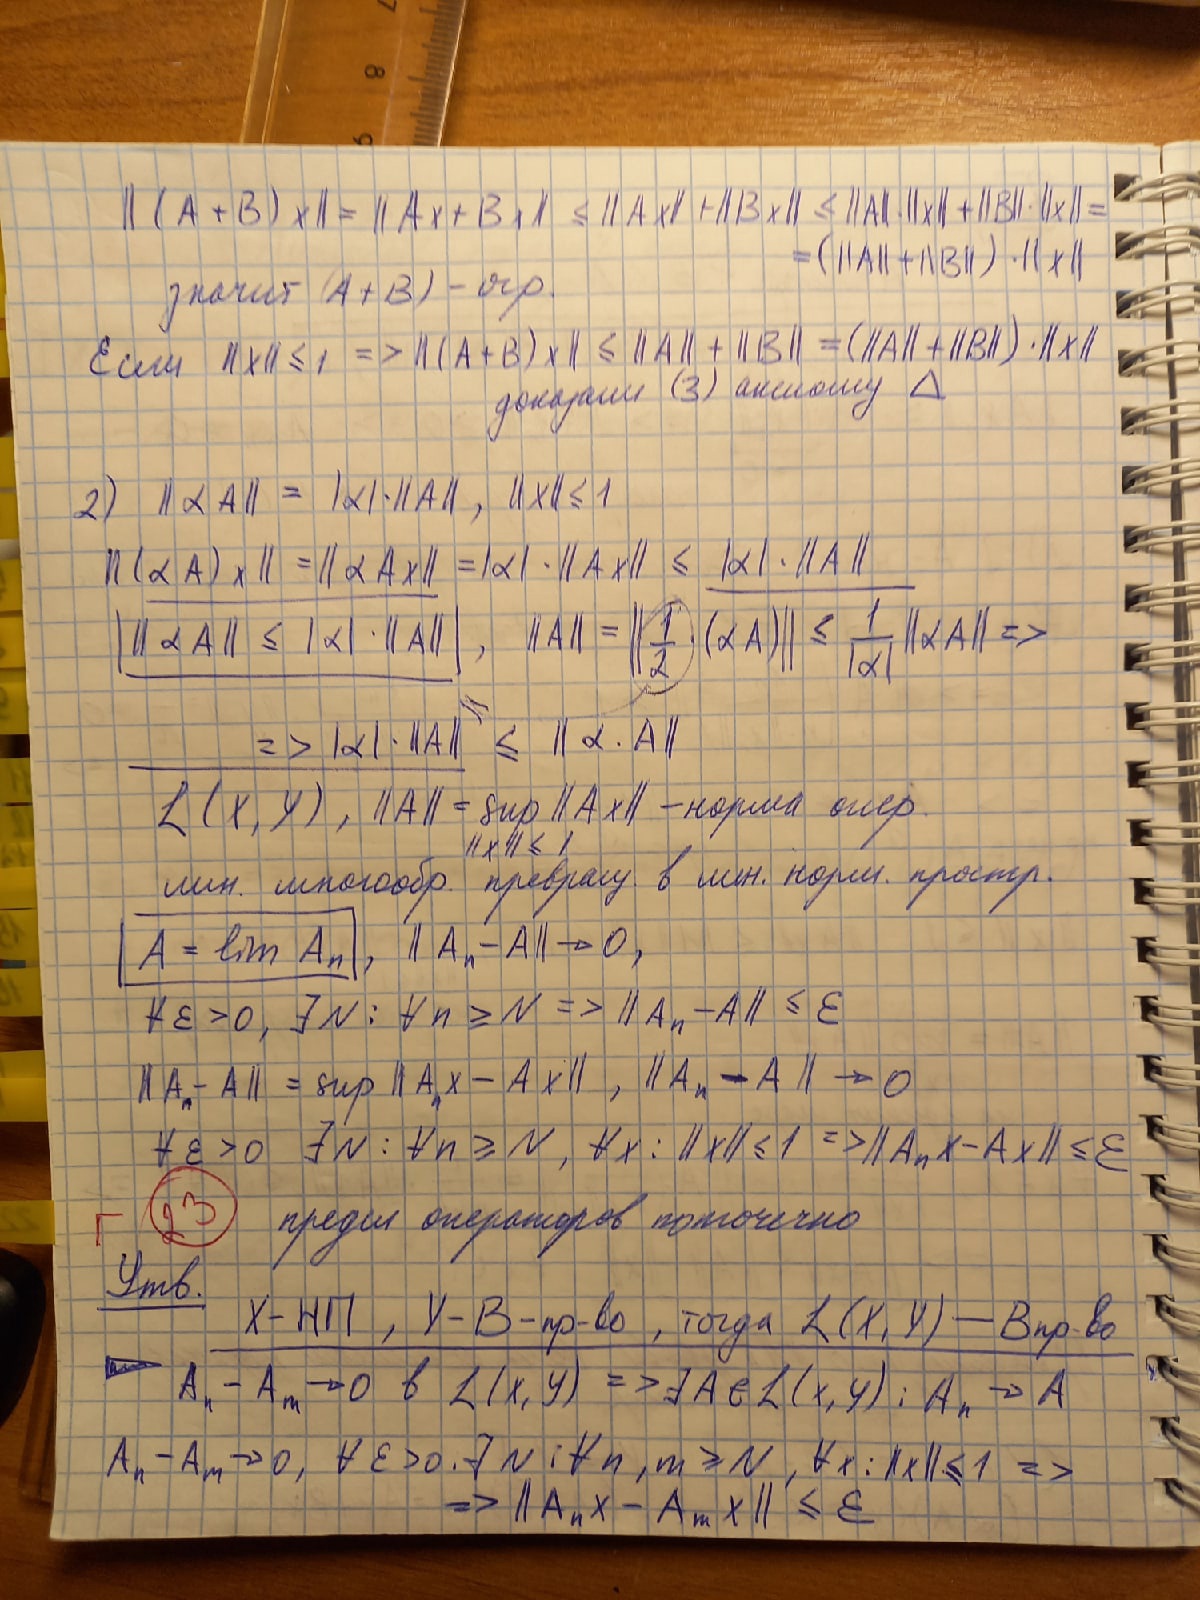 ||(A+B)x|| = ||Ax+Bx|| ≤ ||Ax|| + ||Bx|| ≤ ||A||·||x|| + ||B||·||x|| =
= (||A||+||B||)·||x||
значит (A+B) – огр.
Если ||x|| ≤ 1 => ||(A+B)x|| ≤ ||A|| + ||B|| = (||A||+||B||)·||x||
доказали (3) аксиому Δ
2) ||αA|| = |α|·||A||, ||x|| ≤ 1
||(αA)x|| = ||αAx|| = |α|·||Ax|| ≤ |α|·||A||
||αA|| ≤ |α|·||A||, ||A|| = ||1/2·(αA)|| ≤ 1/|α| ||αA|| =>
=> |α|·||A|| ≤ ||α·A||
L(X,Y), ||A|| = sup ||Ax|| – норма опер.
||x|| ≤ 1
лин. многообр. превращ. в лин. норм. простр.
A = lim Aₙ, ||Aₙ–A|| → 0,
∀ε>0, ∃N: ∀n ≥ N => ||Aₙ–A|| ≤ ε
||Aₙ–A|| = sup ||Aₙx – Ax||, ||Aₙ–A|| → 0
∀ε>0 ∃N: ∀n ≥ N, ∀x: ||x|| ≤ 1 => ||Aₙx–Ax|| ≤ ε
Г 23 предел операторов поточечно
Утв.
X–НП, Y–B–пр-во, тогда L(X,Y) — B пр-во
Aₙ–Aₘ→0 в L(X,Y) => ∃A∈L(X,Y): Aₙ → A
Aₙ–Aₘ→0, ∀ε>0. ∃N: ∀n,m ≥ N, ∀x: ||x|| ≤ 1 =>
=> ||Aₙx – Aₘx|| ≤ ε